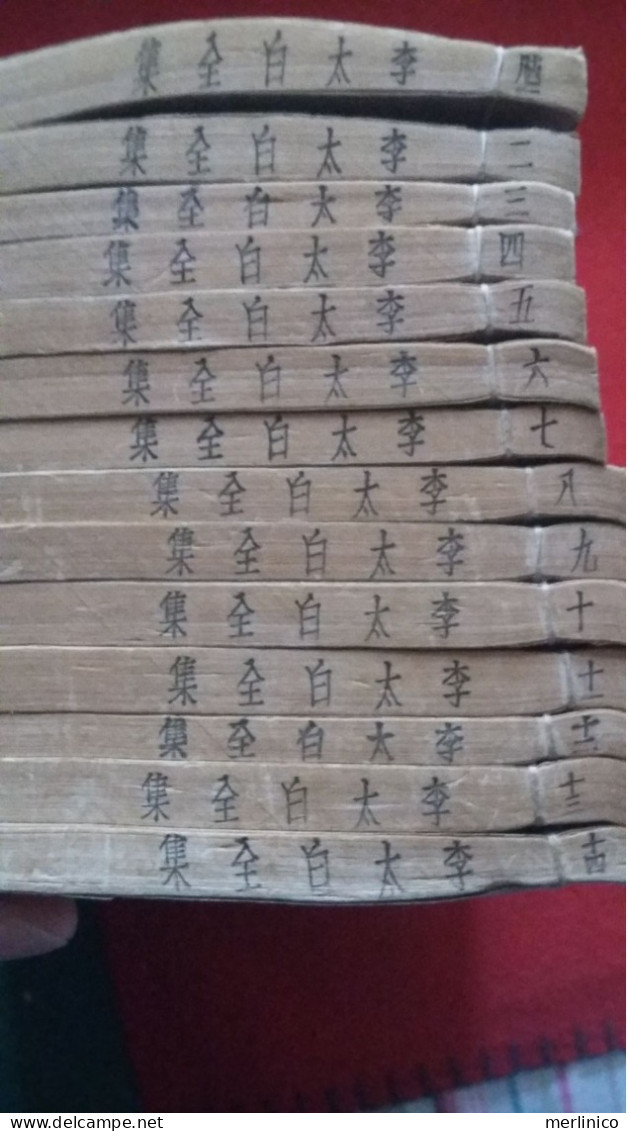 李太白全集
李太白全集 二
李太白全集 三
李太白全集 四
李太白全集 五
李太白全集 六
李太白全集 七
李太白全集 八
李太白全集 九
李太白全集 十
李太白全集 十一
李太白全集 十二
李太白全集 十三
李太白全集 十四
merlinico